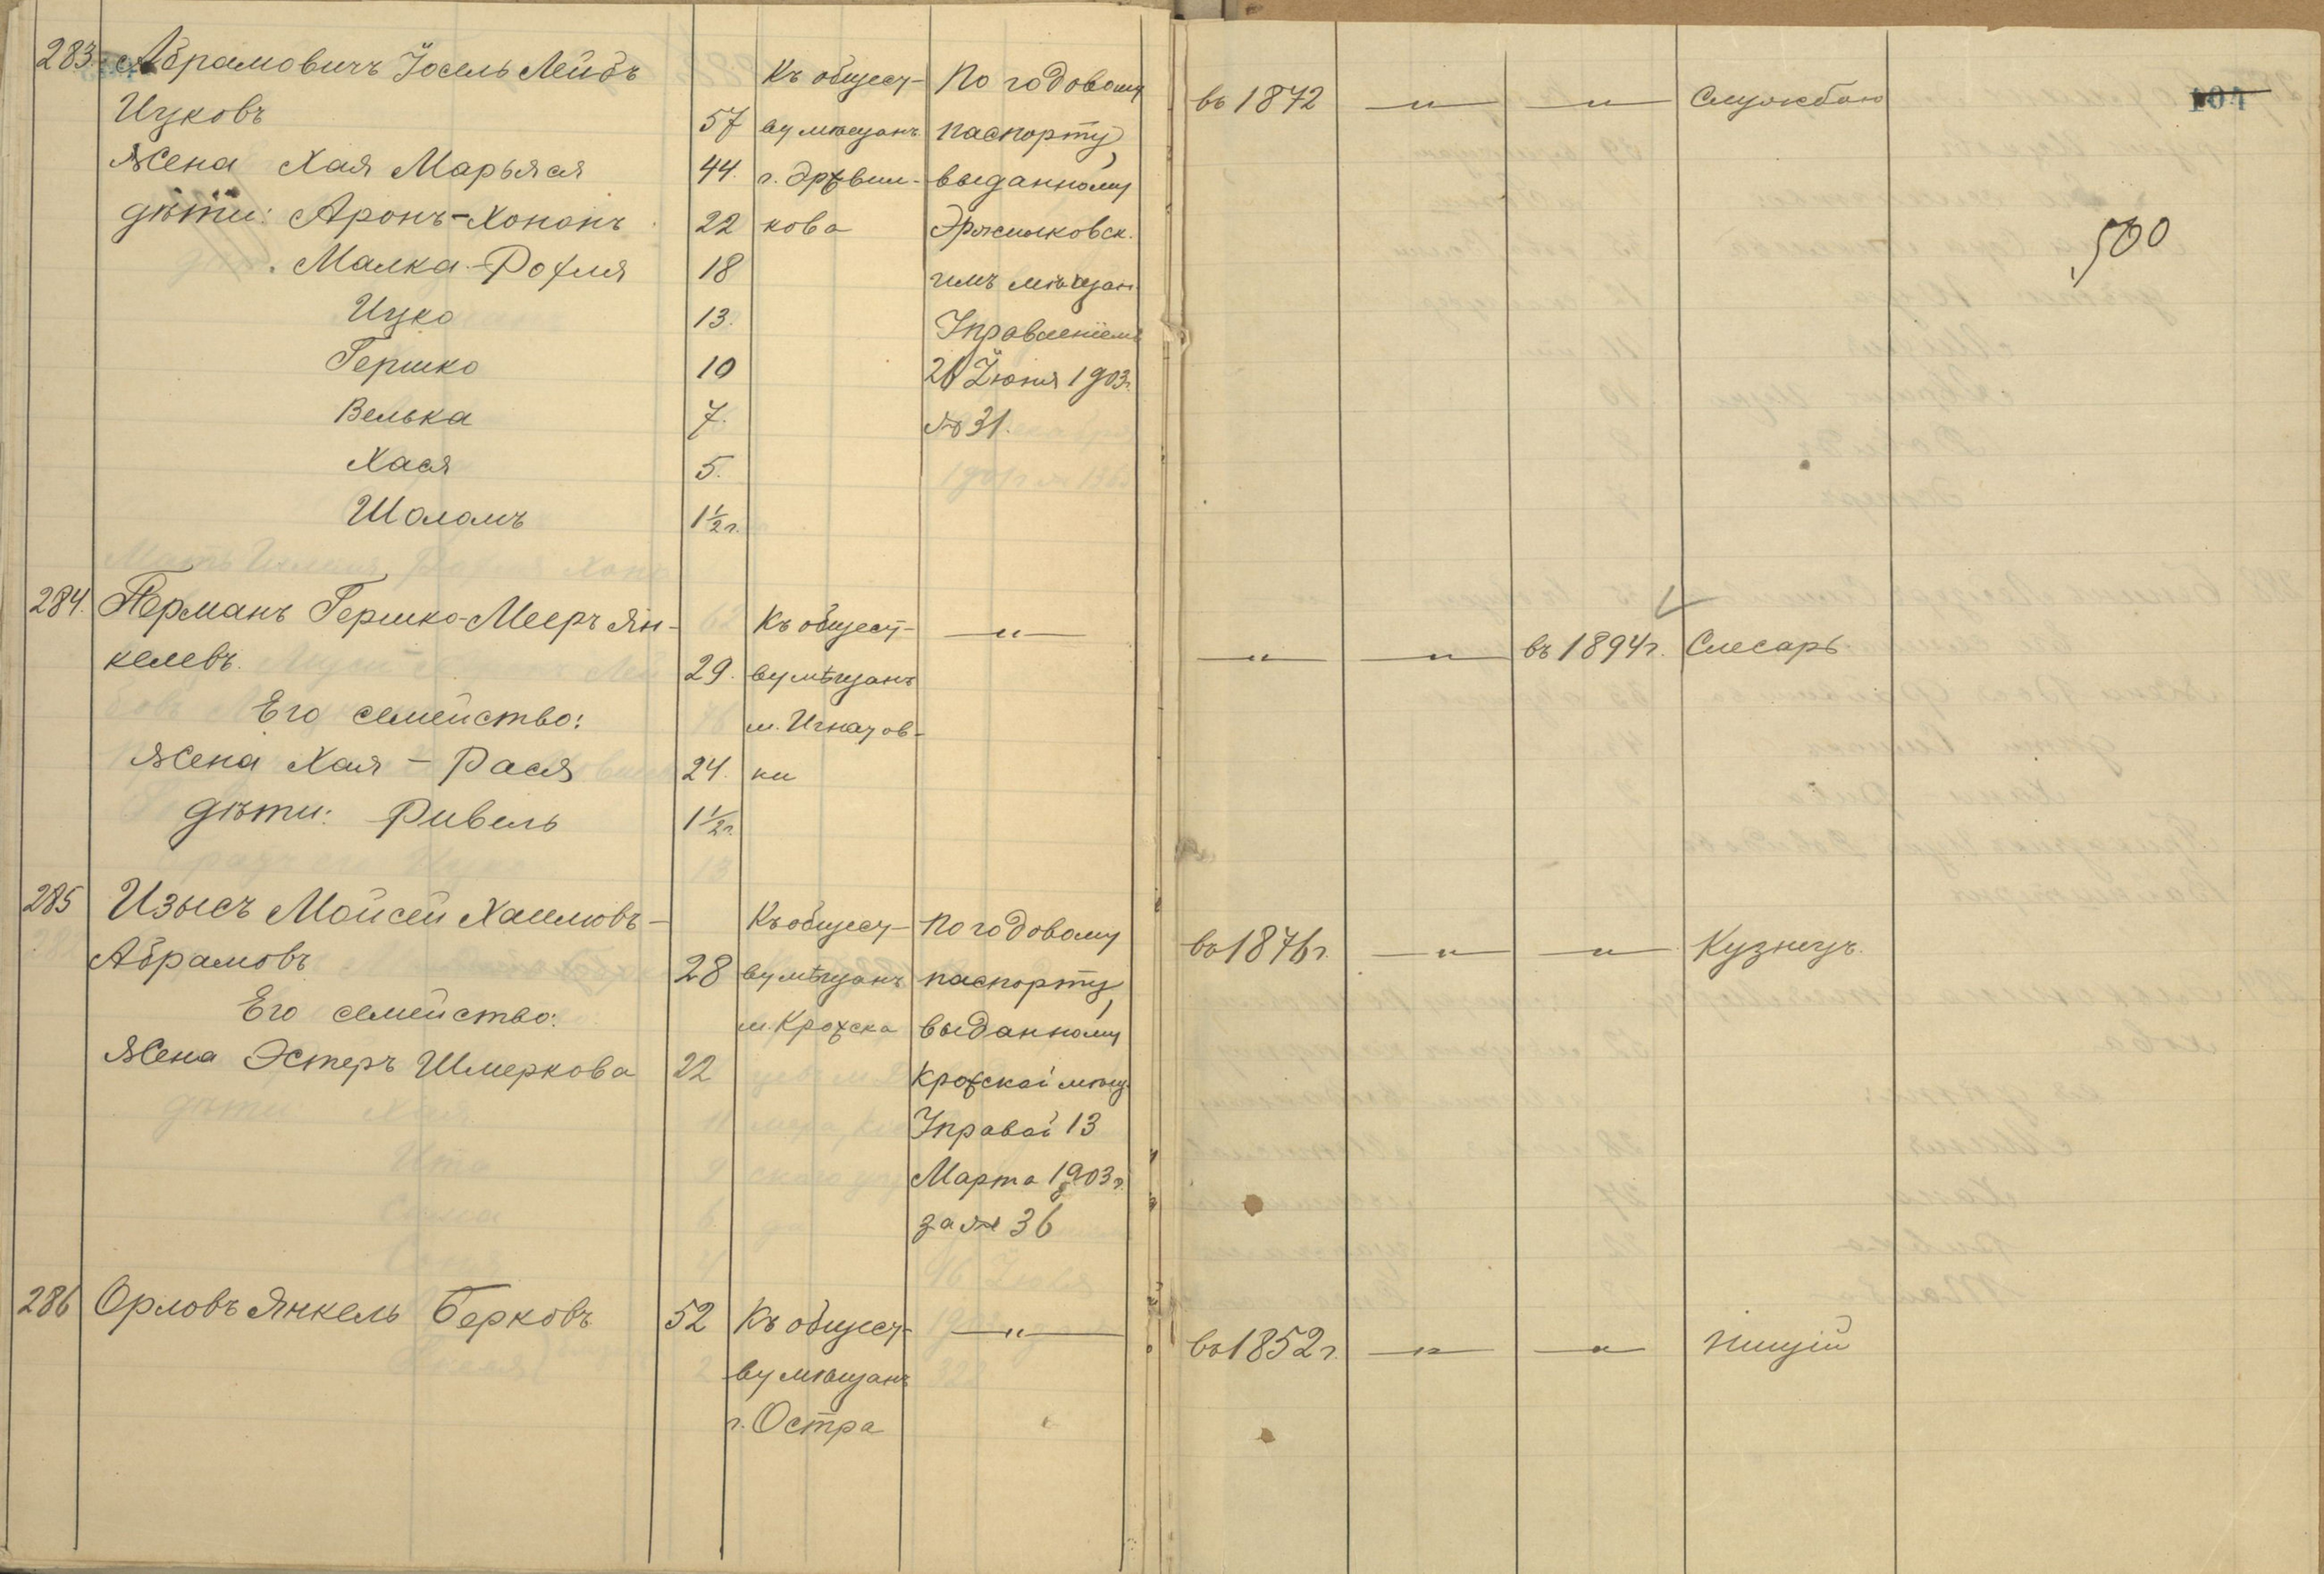 283 Абрамовичъ Іосель Лейбъ Къ общест- По годовому въ 1872 —„— —„— Службою
Ицковъ 57 ву мѣщанъ паспорту,
Жена Хая Марьяся 44. выданному
дѣти: Аронъ-Хононъ 22 кова
Малка-Рохля 18 гимъ мѣщан.
Ицко 13. Управленіемъ
Гершко 10 26 Іюня 1903 г.
Велька 7. № 31.
Хася 5.
Шоломъ 1½ г.
500
284. Перманъ Гершко-Мееръ Ян- Къ общест- —„—
келевъ. 29. ву мѣщанъ —„— —„— въ 1894 г. Слесарь
Его семейство: м. Игнатов-
Жена Хая-Рася 24. ки
дѣти: Ривель 1½ г.
285 Изысъ Мойсей Хаимовъ- Къ общест- По годовому въ 1876 г. —„— —„— Кузнецъ.
Абрамовъ 28 ву мѣщанъ паспорту,
Его семейство: выданному
Жена Эстеръ Шмеркова 22 мѣщ.
Управой 13
Марта 1903 г.
за № 36
286 Орловъ Янкель Берковъ 52 Къ общест- —„— въ 1852 г. —„— —„— Нищій
ву мѣщанъ
г. Остра